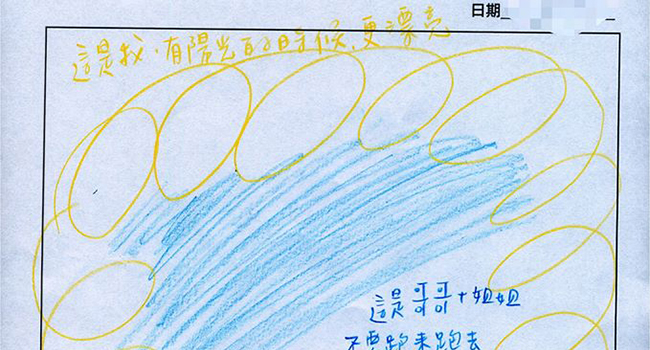 日期
這是我,有陽光的時候,更漂亮
這是哥哥+姐姐
不要跑來跑去